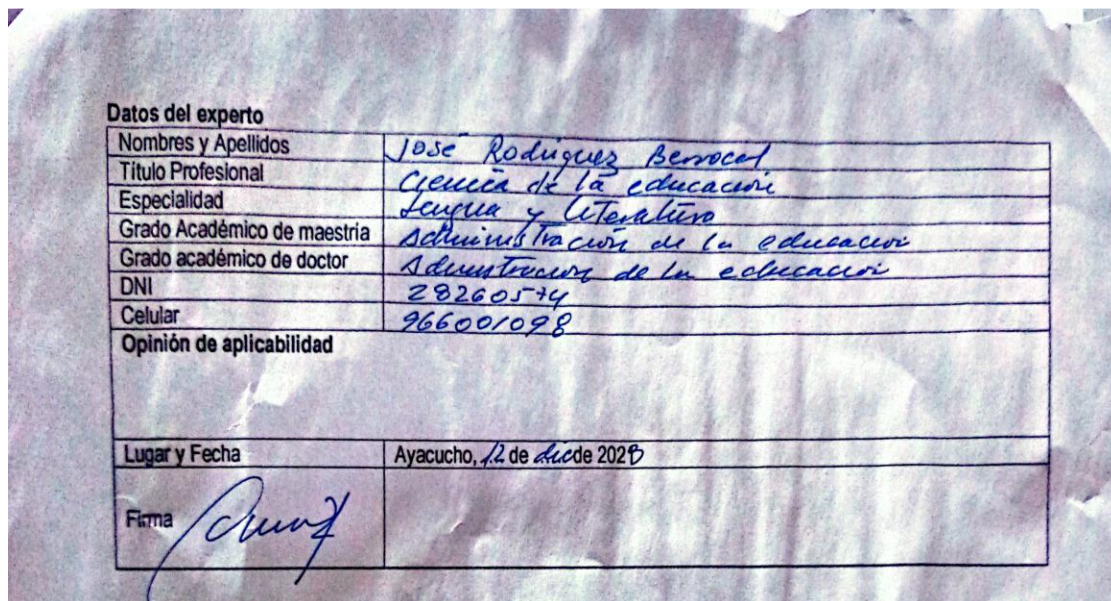 Datos del experto
Nombres y Apellidos José Rodríguez Berrocal
Título Profesional Ciencia de la educación
Especialidad Lengua y Literatura
Grado Académico de maestria Administración de la educación
Grado académico de doctor Administración de la educación
DNI
Celular 966001098
Opinión de aplicabilidad
Lugar y Fecha Ayacucho, 12 de dic de
Firma